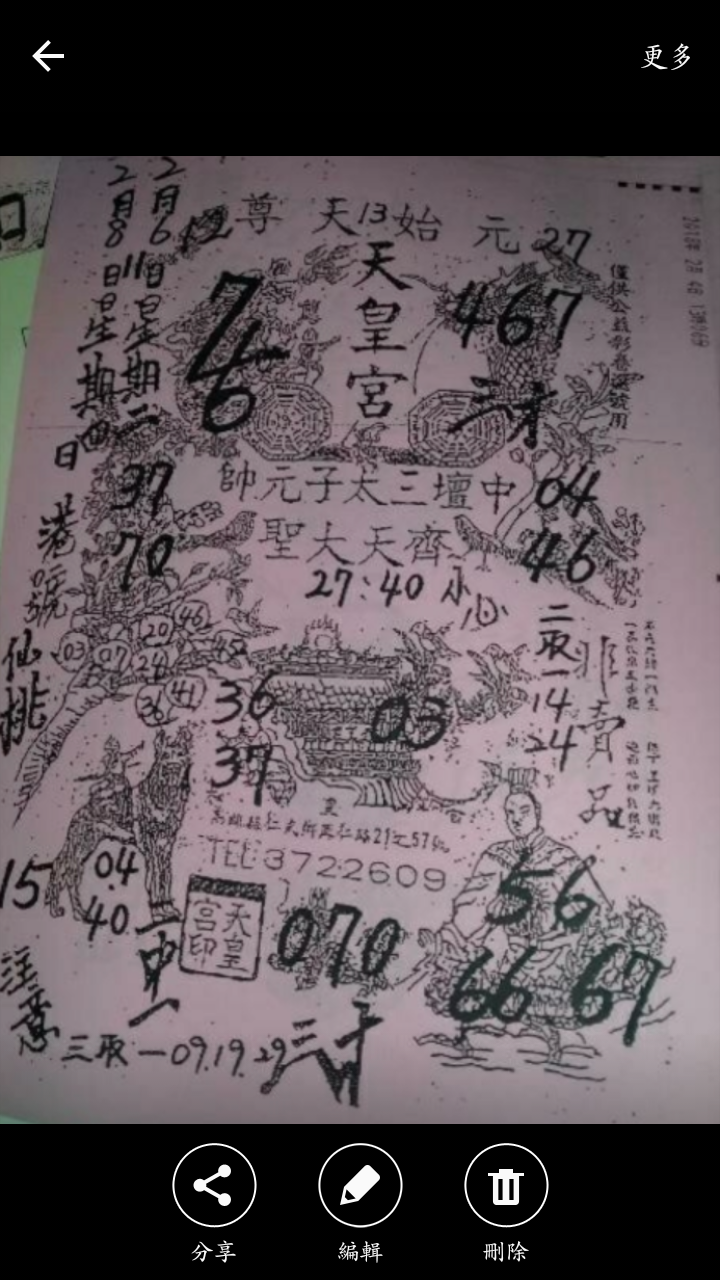 更多
2月6日星期二
2月8日星期四
12 尊 天 13 始 元 27
2018年 2月 4日
天皇宮
僅供公益彩卷選號用
7
6
467
三才
日
37
帥元子太三壇中
04
港號
70
聖大天齊
46
27:40 小心
仙桃
20
46
03
07
24
45
36
41
二取一
14
24
非賣品
36
03
37
TEL:3722609
15
04
40
二中一
天皇宮印
070
56
66 67
注意
三取一09.19.29
三才
分享
編輯
刪除